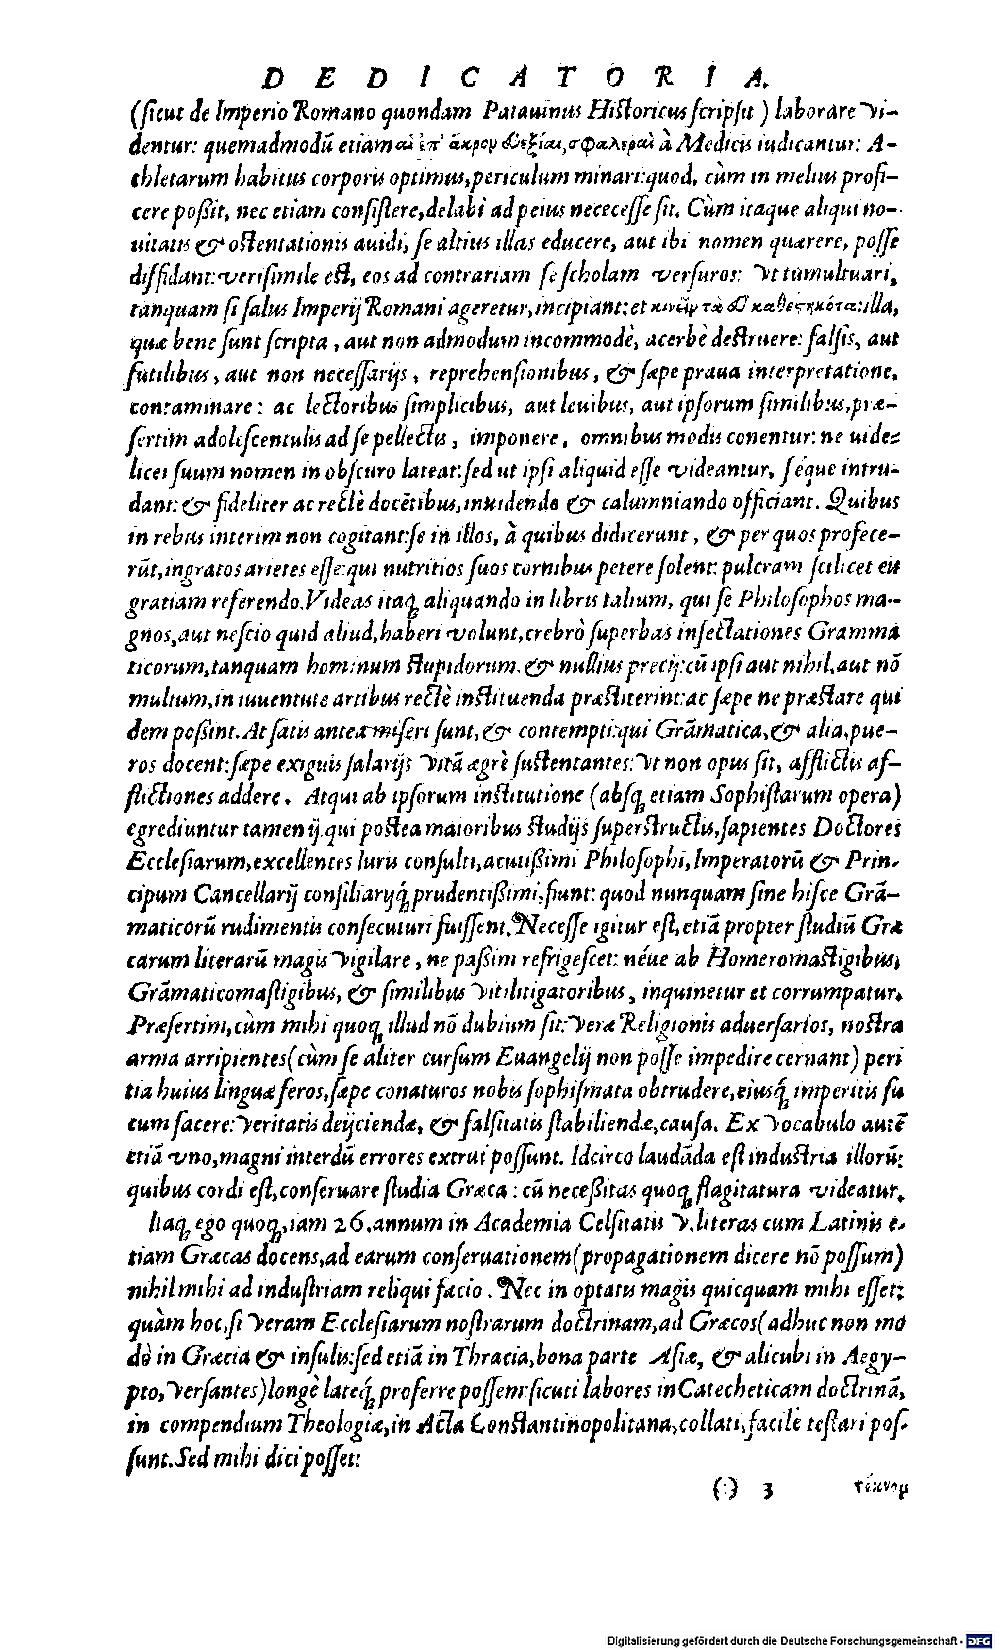 DEDICATORIA.
(ſicut de Imperio Romano quondam Patauinus Hiſtoricus ſcripſit) laborare vi-
dentur: quemadmodū etiam αἱ ἐπ' ἄκρον δεξίαι, σφαλεραὶ à Medicis iudicantur: A-
thletarum habitus corporis optimus, periculum minari: quod, cùm in melius profi-
cere poßit, nec etiam conſiſtere, delabi ad peius nececeſſe ſit. Cùm itaque aliqui no-
uitatis & oſtentationis auidi, ſe altius illas educere, aut ibi nomen quærere, poſſe
diffidant: veriſimile eſt, eos ad contrariam ſe ſcholam verſuros: vt tumultuari,
tanquam ſi ſalus Imperij Romani ageretur, incipiant: et κινεῖν τὰ καθεστηκότα: illa,
quæ bene ſunt ſcripta, aut non admodum incommodè, acerbè deſtruere: falſis, aut
futilibus, aut non neceſſarijs, reprehenſionibus, & ſæpe praua interpretatione,
contaminare: ac lectoribus ſimplicibus, aut leuibus, aut ipſorum ſimilibus, præ-
ſertim adoleſcentulis ad ſe pellectis, imponere, omnibus modis conentur: ne uide-
licet ſuum nomen in obſcuro lateat: ſed ut ipſi aliquid eſſe videantur, ſéque intru-
dant: & fideliter ac rectè docētibus, inuidendo & calumniando officiant. Quibus
in rebus interim non cogitant: ſe in illos, à quibus didicerunt, & per quos profece-
rūt, ingratos arietes eſſe: qui nutritios ſuos cornibus petere ſolent: pulcram ſcilicet eis
gratiam referendo. Videas itaq; aliquando in libris talium, qui ſe Philoſophos ma-
gnos, aut neſcio quid aliud, haberi volunt, crebrò ſuperbas inſectationes Gramma
ticorum, tanquam hominum ſtupidorum, & nullius precij: cū ipſi aut nihil, aut nō
multum, in iuuentute artibus rectè inſtituenda præſtiterint: ac ſæpe ne præſtare qui
dem poßint. At ſatis antea miſeri ſunt, & contempti: qui Grāmatica, & alia, pue-
ros docent: ſæpe exiguis ſalarijs vitā ægrè ſuſtentantes: vt non opus ſit, afflictis af-
flictiones addere. Atqui ab ipſorum inſtitutione (abſq; etiam Sophiſtarum opera)
egrediuntur tamen ij, qui poſtea maioribus ſtudijs ſuperſtructis, ſapientes Doctores
Eccleſiarum, excellentes Iuris conſulti, acutißimi Philoſophi, Imperatorū & Prin-
cipum Cancellarij conſiliarijq́; prudentißimi, fiunt: quod nunquam ſine hiſce Grā-
maticorū rudimentis conſecuturi fuiſſent. Neceſſe igitur eſt, etiā propter ſtudiū Græ
carum literarū magis vigilare, ne paßim refrigeſcet: néue ab Homeromaſtigibus,
Grāmaticomaſtigibus, & ſimilibus vitilitigatoribus, inquinetur et corrumpatur.
Præſertim, cùm mihi quoq; illud nō dubium ſit: veræ Religionis aduerſarios, noſtra
arma arripientes (cùm ſe aliter curſum Euangelij non poſſe impedire cernant) peri
tia huius linguæ feros, ſæpe conaturos nobis ſophiſmata obtrudere, eiusq́; imperitis fu
cum facere: veritatis deijciendæ, & falſitatis ſtabiliendæ, cauſa. Ex vocabulo autē
etiā vno, magni interdū errores extrui poſſunt. Idcirco laudāda eſt induſtria illorū:
quibus cordi eſt, conſeruare ſtudia Græca: cū neceßitas quoq; flagitatura videatur.
Itaq; ego quoq;, iam 26. annum in Academia Celſitatis v. literas cum Latinis e-
tiam Græcas docens, ad earum conſeruationem (propagationem dicere nō poſſum)
nihil mihi ad induſtriam reliqui facio. Nec in optatis magis quicquam mihi eſſet:
quàm hoc, ſi veram Eccleſiarum noſtrarum doctrinam, ad Græcos (adhuc non mo
dò in Græcia & inſulis: ſed etiā in Thracia, bona parte Aſiæ, & alicubi in Aegy-
pto, verſantes) longè lateq́; proferre poſſem: ſicuti labores in Catecheticam doctrinā,
in compendium Theologiæ, in Acta Conſtantinopolitana, collati, facilè teſtari poſ-
ſunt. Sed mihi dici poſſet:
(:) 3 τέκνον
Digitalisierung gefördert durch die Deutsche Forschungsgemeinschaft - DFG